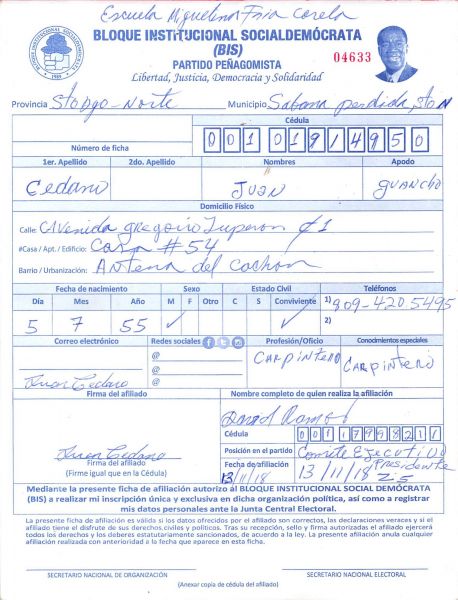 Escuela Miguelina Fria Corela
BLOQUE INSTITUCIONAL SOCIALDEMÓCRATA
(BIS)
PARTIDO PEÑAGOMISTA
04633
Libertad, Justicia, Democracia y Solidaridad
Provincia Stodgo-Norte Municipio Sabana perdida, StoN
Cédula
Número de ficha
1er. Apellido 2do. Apellido Nombres Apodo
Cedano JUAN guancho
Domicilio Físico
Calle: Avenida gregorio Luperon #1
#Casa / Apt. / Edificio: Casa #54
Barrio / Urbanización: Antena del Cachon
Fecha de nacimiento Sexo Estado Civil Teléfonos
Día Mes Año M F Otro C S Conviviente 1) 809-420 5495
5 7 55 ✓ ✓ 2)
Correo electrónico Redes sociales Profesión/Oficio Conocimientos especiales
@ CARPINTERO CARPINTERO
@
Juan Cedano @
Firma del afiliado Nombre completo de quien realiza la afiliación
David Ramos
Cédula
Juan Cedano Posición en el partido Comite Ejecutivo
Firma del afiliado Fecha de afiliación 13/11/18 Presidente
(Firme igual que en la Cédula) 13/11/18
Mediante la presente ficha de afiliación autorizo al BLOQUE INSTITUCIONAL SOCIAL DEMÓCRATA
(BIS) a realizar mi inscripción única y exclusiva en dicha organización política, así como a registrar
mis datos personales ante la Junta Central Electoral.
La presente ficha de afiliación es válida si los datos ofrecidos por el afiliado son correctos, las declaraciones veraces y si el
afiliado tiene el disfrute de sus derechos civiles y políticos. Tras su recepción, sello y firma autorizada el afiliado ejercerá
todos los derechos y los deberes estatutariamente sancionados, de acuerdo a la ley. La presente afiliación anula cualquier
afiliación realizada con anterioridad a la fecha que aparece en esta ficha.
SECRETARIO NACIONAL DE ORGANIZACIÓN SECRETARIO NACIONAL ELECTORAL
(Anexar copia de cédula del afiliado)